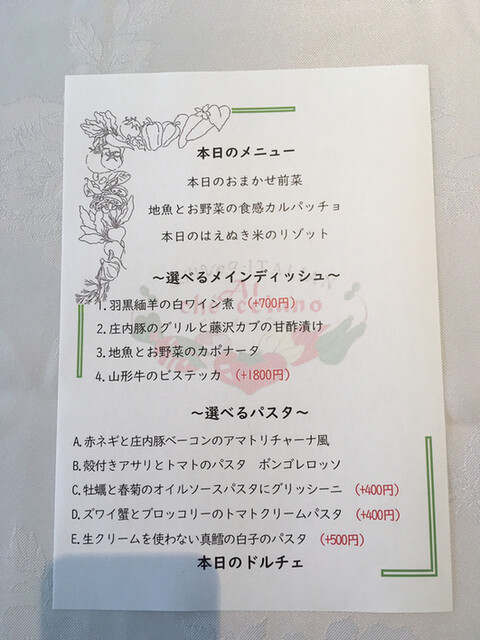 本日のメニュー
本日のおまかせ前菜
地魚とお野菜の食感カルパッチョ
本日のはえぬき米のリゾット
～選べるメインディッシュ～
1. 羽黒緬羊の白ワイン煮 (+700円)
2. 庄内豚のグリルと藤沢カブの甘酢漬け
3. 地魚とお野菜のカポナータ
4. 山形牛のビステッカ (+1800円)
～選べるパスタ～
A. 赤ネギと庄内豚ベーコンのアマトリチャーナ風
B. 殻付きアサリとトマトのパスタ ボンゴレロッソ
C. 牡蠣と春菊のオイルソースパスタにグリッシーニ (+400円)
D. ズワイ蟹とブロッコリーのトマトクリームパスタ (+400円)
E. 生クリームを使わない真鱈の白子のパスタ (+500円)
本日のドルチェ